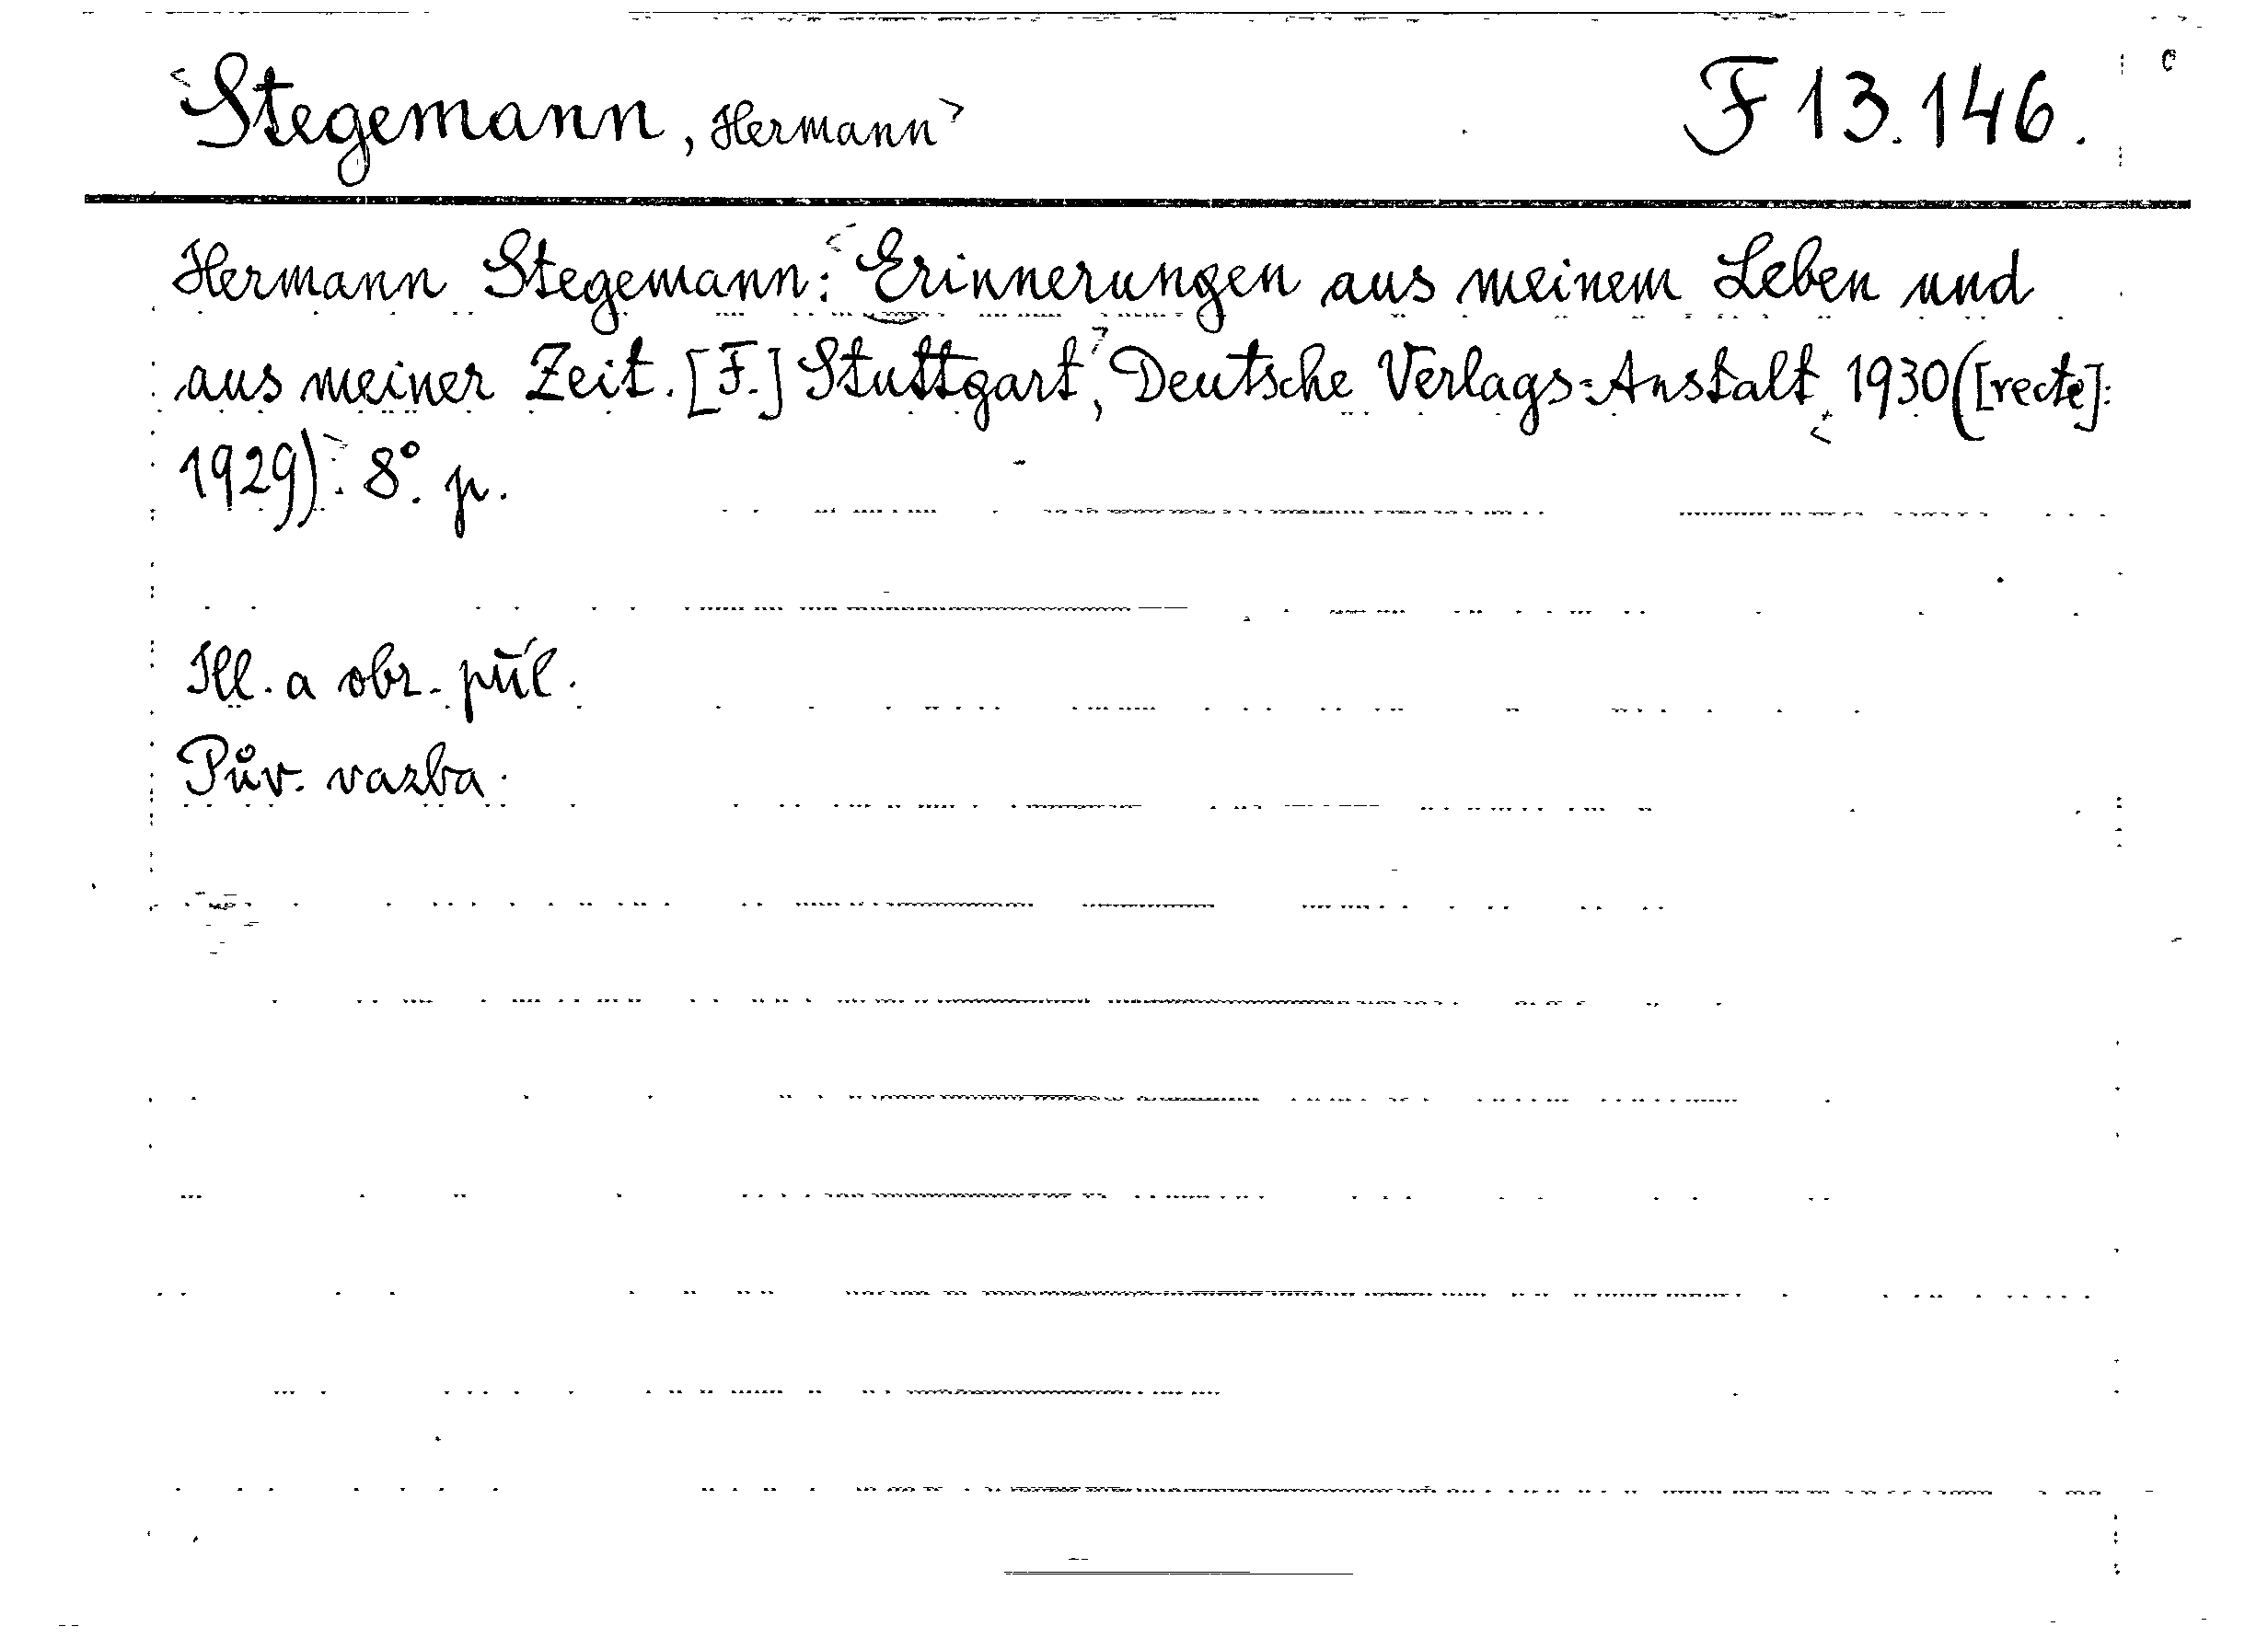 Stegemann, Hermann F 13.146.
Hermann Stegemann: Erinnerungen aus meinem Leben und
aus meiner Zeit. [F.] Stuttgart, Deutsche Verlags-Anstalt, 1930 ([recte]:
1929). 8°. p.
Ill. a obr. příl.
Pův. vazba.